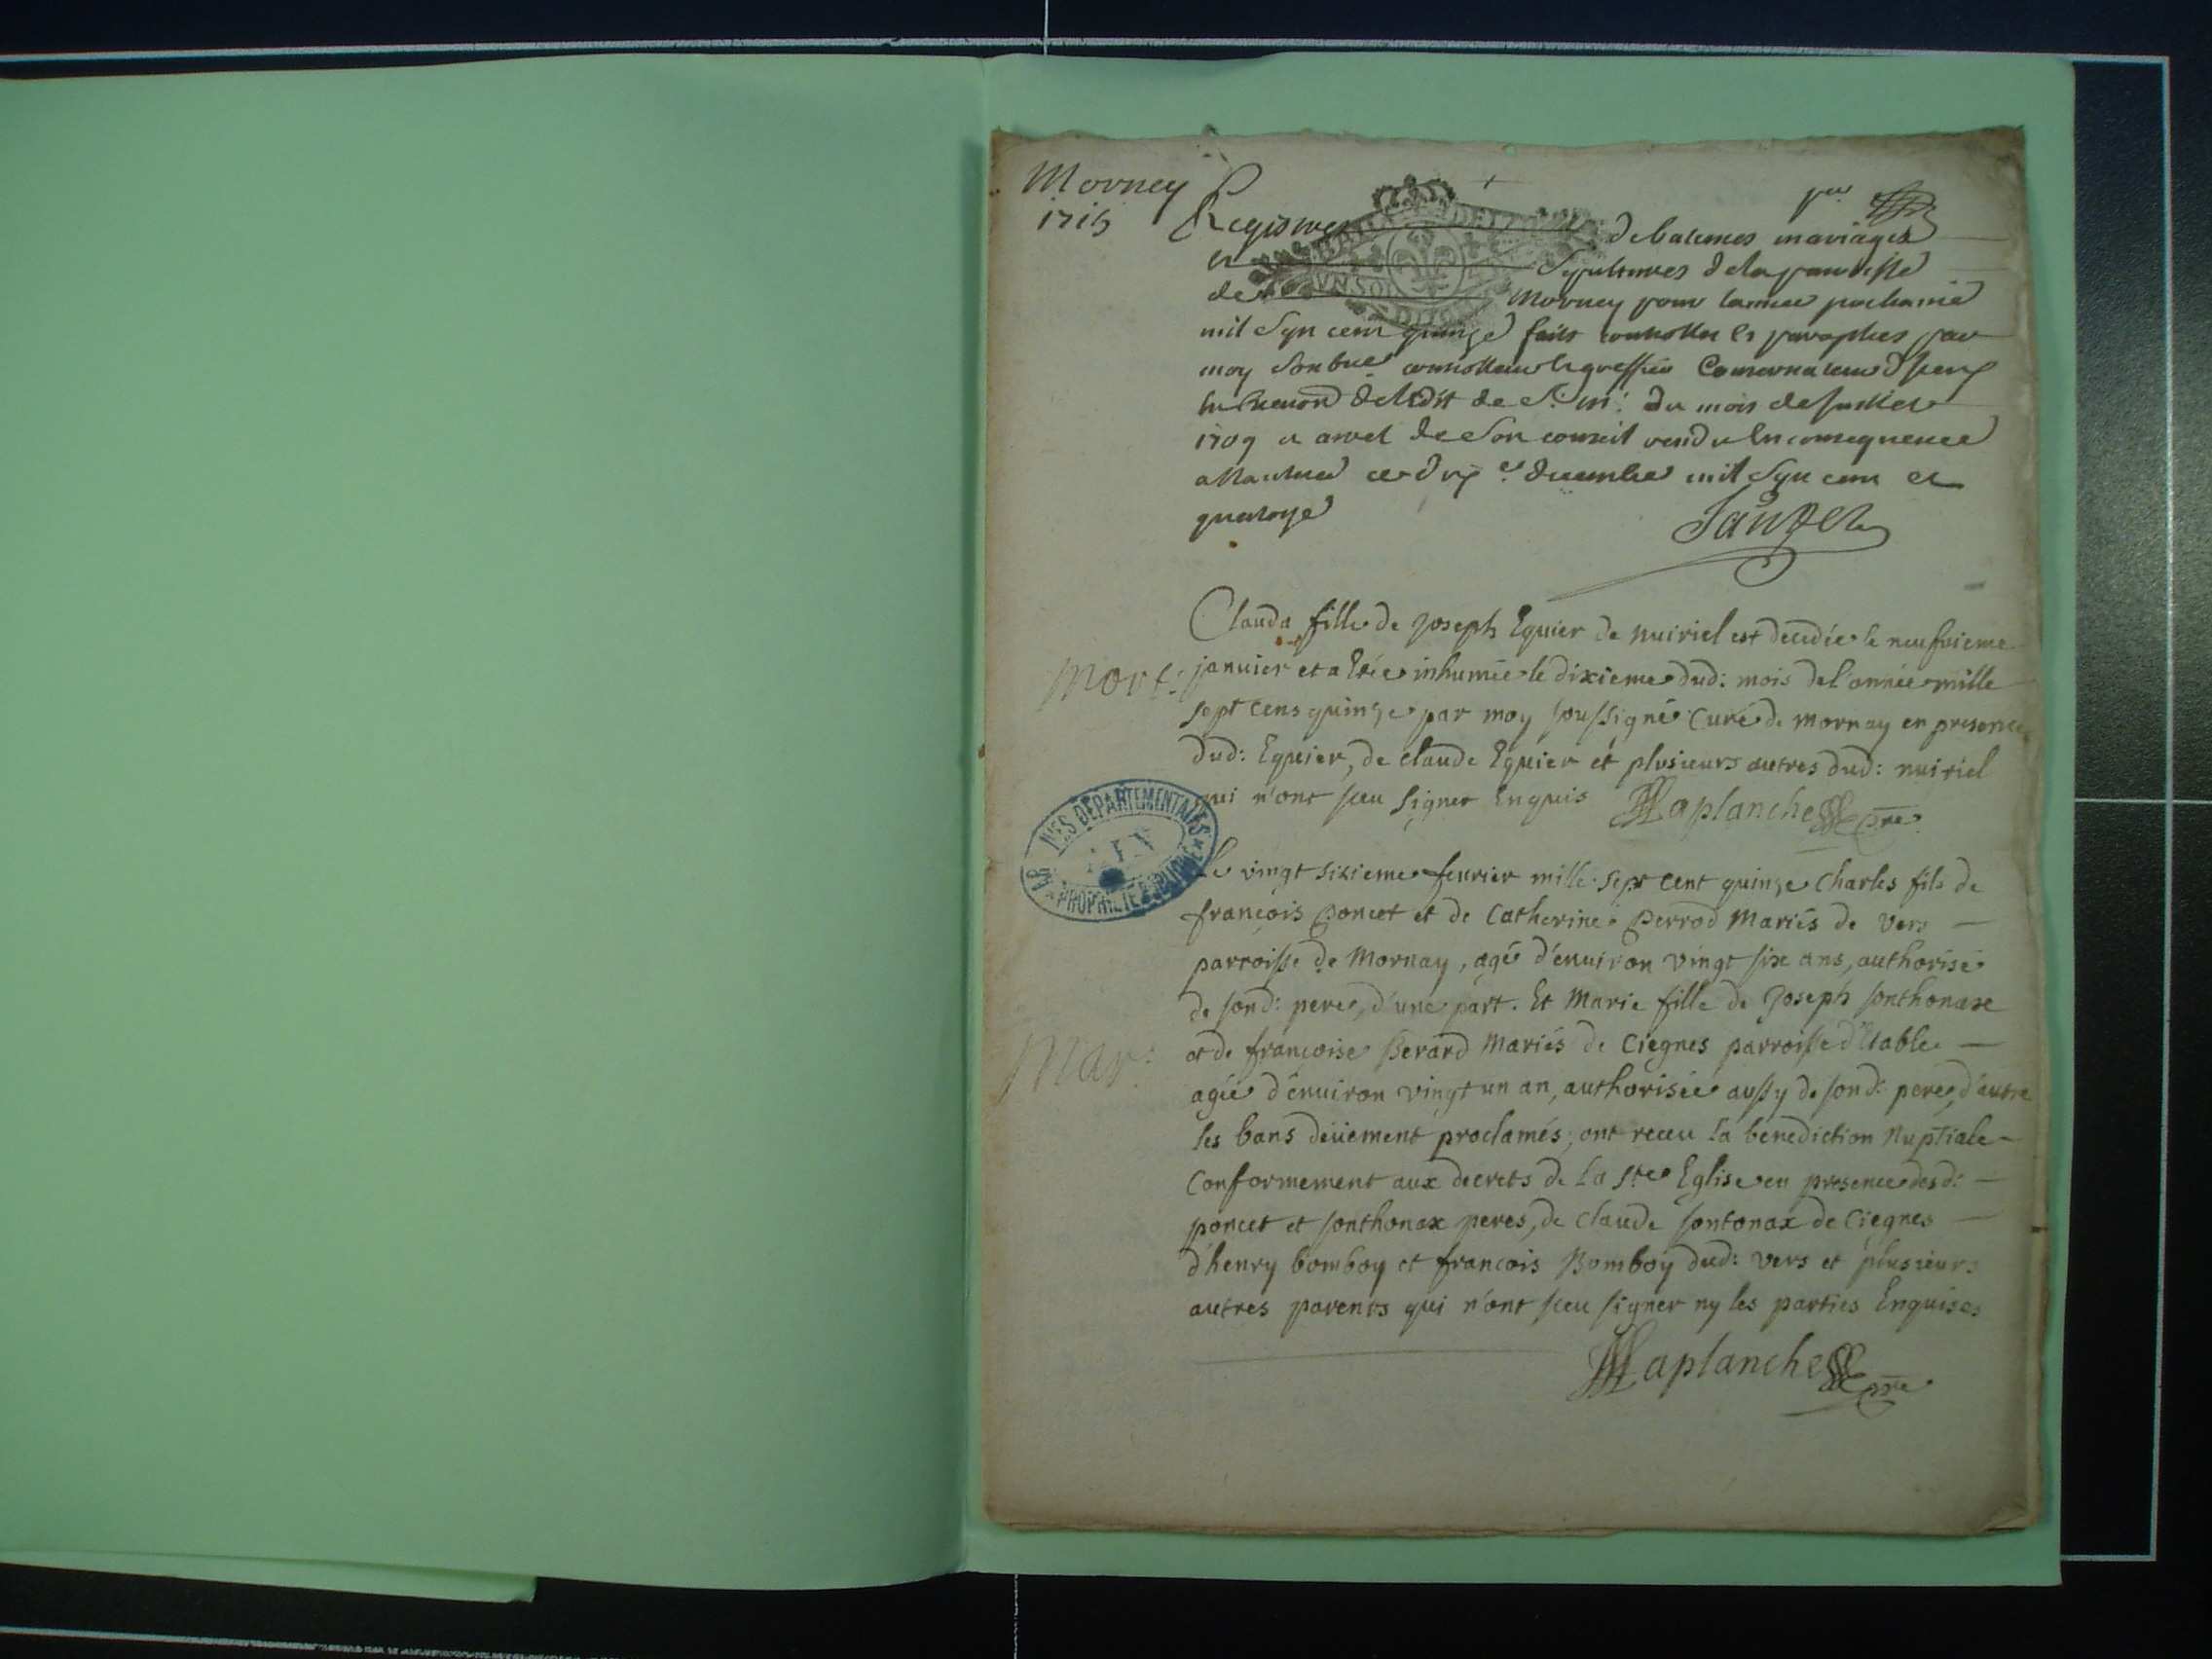 Morney
1715
Registre de batemes mariages
et Sepultures de la parroisse
de Morney pour lannee prochaine
mil Sept cent quinze fait controller et paraphes par
moy controlleur le greffier Conservateur
de ledit de S. M. du mois de Juillet
1709 et arret de Son conseil rendu En consequence
a Nantua ce decembre mil Sept cent et
quatorze
GEN
UN SOL
Mort:
Clauda fille de Joseph Eguier de nuiriel est decedée le neufvieme
janvier et a Etée inhumée le dixieme dud: mois de l'année mille
sept cens quinze par moy soussigné Curé de mornay en presence
dud: Eguier, de claude Eguier et plusieurs autres dud: nuiriel
qui n'ont sceu signer Enquis Laplanche pre
ARCHIVES DEPARTEMENTALES
AIN
PROPRIETE PUBLIQUE
Mar:
Le vingt sixieme fevrier mille sept cent quinze Charles fils de
françois Poncet et de Catherine Perrod Mariés de Vers
parroisse de Mornay, agé d'environ vingt six ans, authorisé
de sond: pere, d'une part. Et Marie fille de Joseph sonthonax
et de françoise Berard Mariés de Ciegnes parroisse d'Etable
agée d'environ vingt un an, authorisée aussy de sond: pere, d'autre
les bans deüement proclamés, ont receu la benediction Nuptiale
Conformement aux decrets de La Ste Eglise en presence desd:
poncet et sonthonax peres, de claude sontonax de Ciegnes
d'henry bomboy et francois Bomboy dud: vers et plusieurs
autres parents qui n'ont sceu signer ny les parties Enquises
Laplanche pre